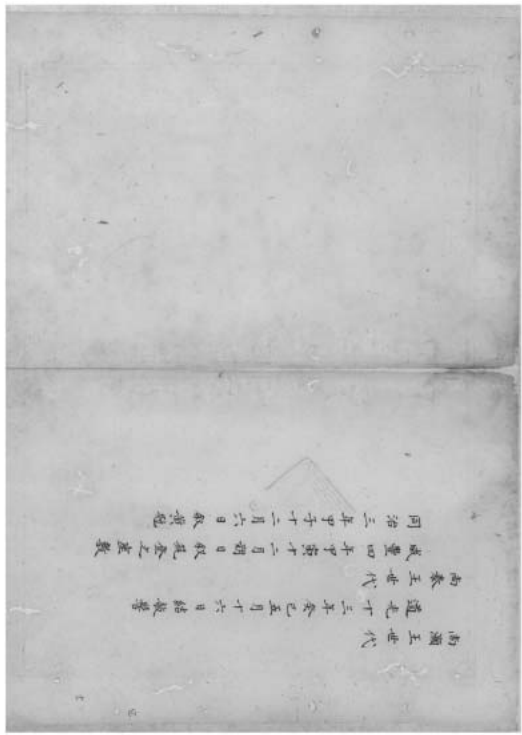 尚灝王世代
道光十三年癸巳五月十六日結敧髻
尚泰王世代
咸豐四年甲寅十二月朔日叙筑登之座敷
同治三年甲子十二月六日叙黄冠